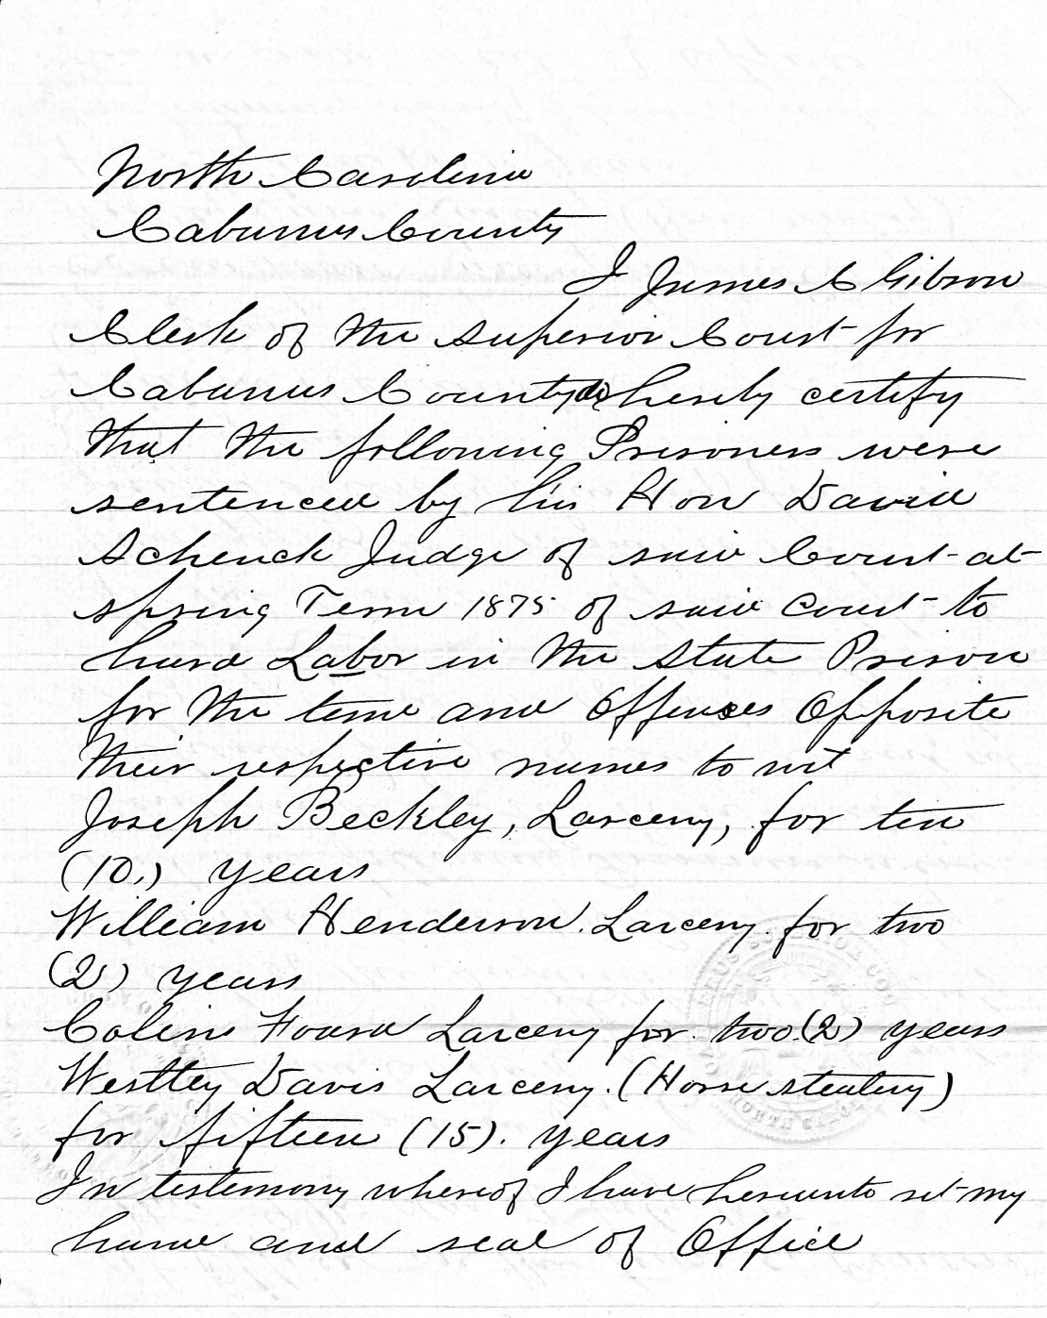 North Carolina
Cabarrus County
I James C Gibson
Clerk of the Superior Court for
Cabarrus County do hereby certify
that the following Prisoners were
sentenced by his Hon David
Schenck Judge of said Court at
spring Term 1875 of said court to
hard Labor in the State Prison
for the time and Offences Opposite
their respective names to wit
Joseph Beckley, Larceny, for ten
(10,) years
William Henderson. Larceny. for two
(2) years
Colin Foard Larceny for two (2) years
Westley Davis Larceny. (Horse stealing)
for fifteen (15). years
In testimony whereof I have hereunto set my
hand and seal of Office